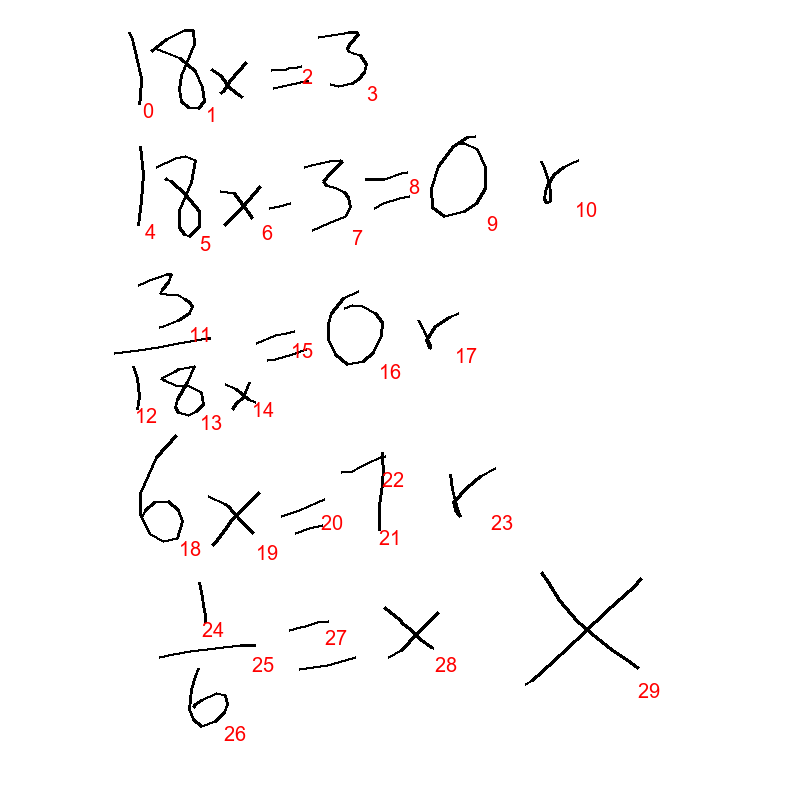 18x = 3
0 1 2 3
18x - 3 = 0 ✓
4 5 6 7 8 9 10
3/18x = 0 ✓
11 12 13 14 15 16 17
6x = 1 ✓
18 19 20 21 22 23
1/6 = x ✗
24 25 26 27 28 29